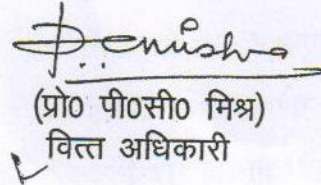 (प्रो0 पी0सी0 मिश्र)
वित्त अधिकारी